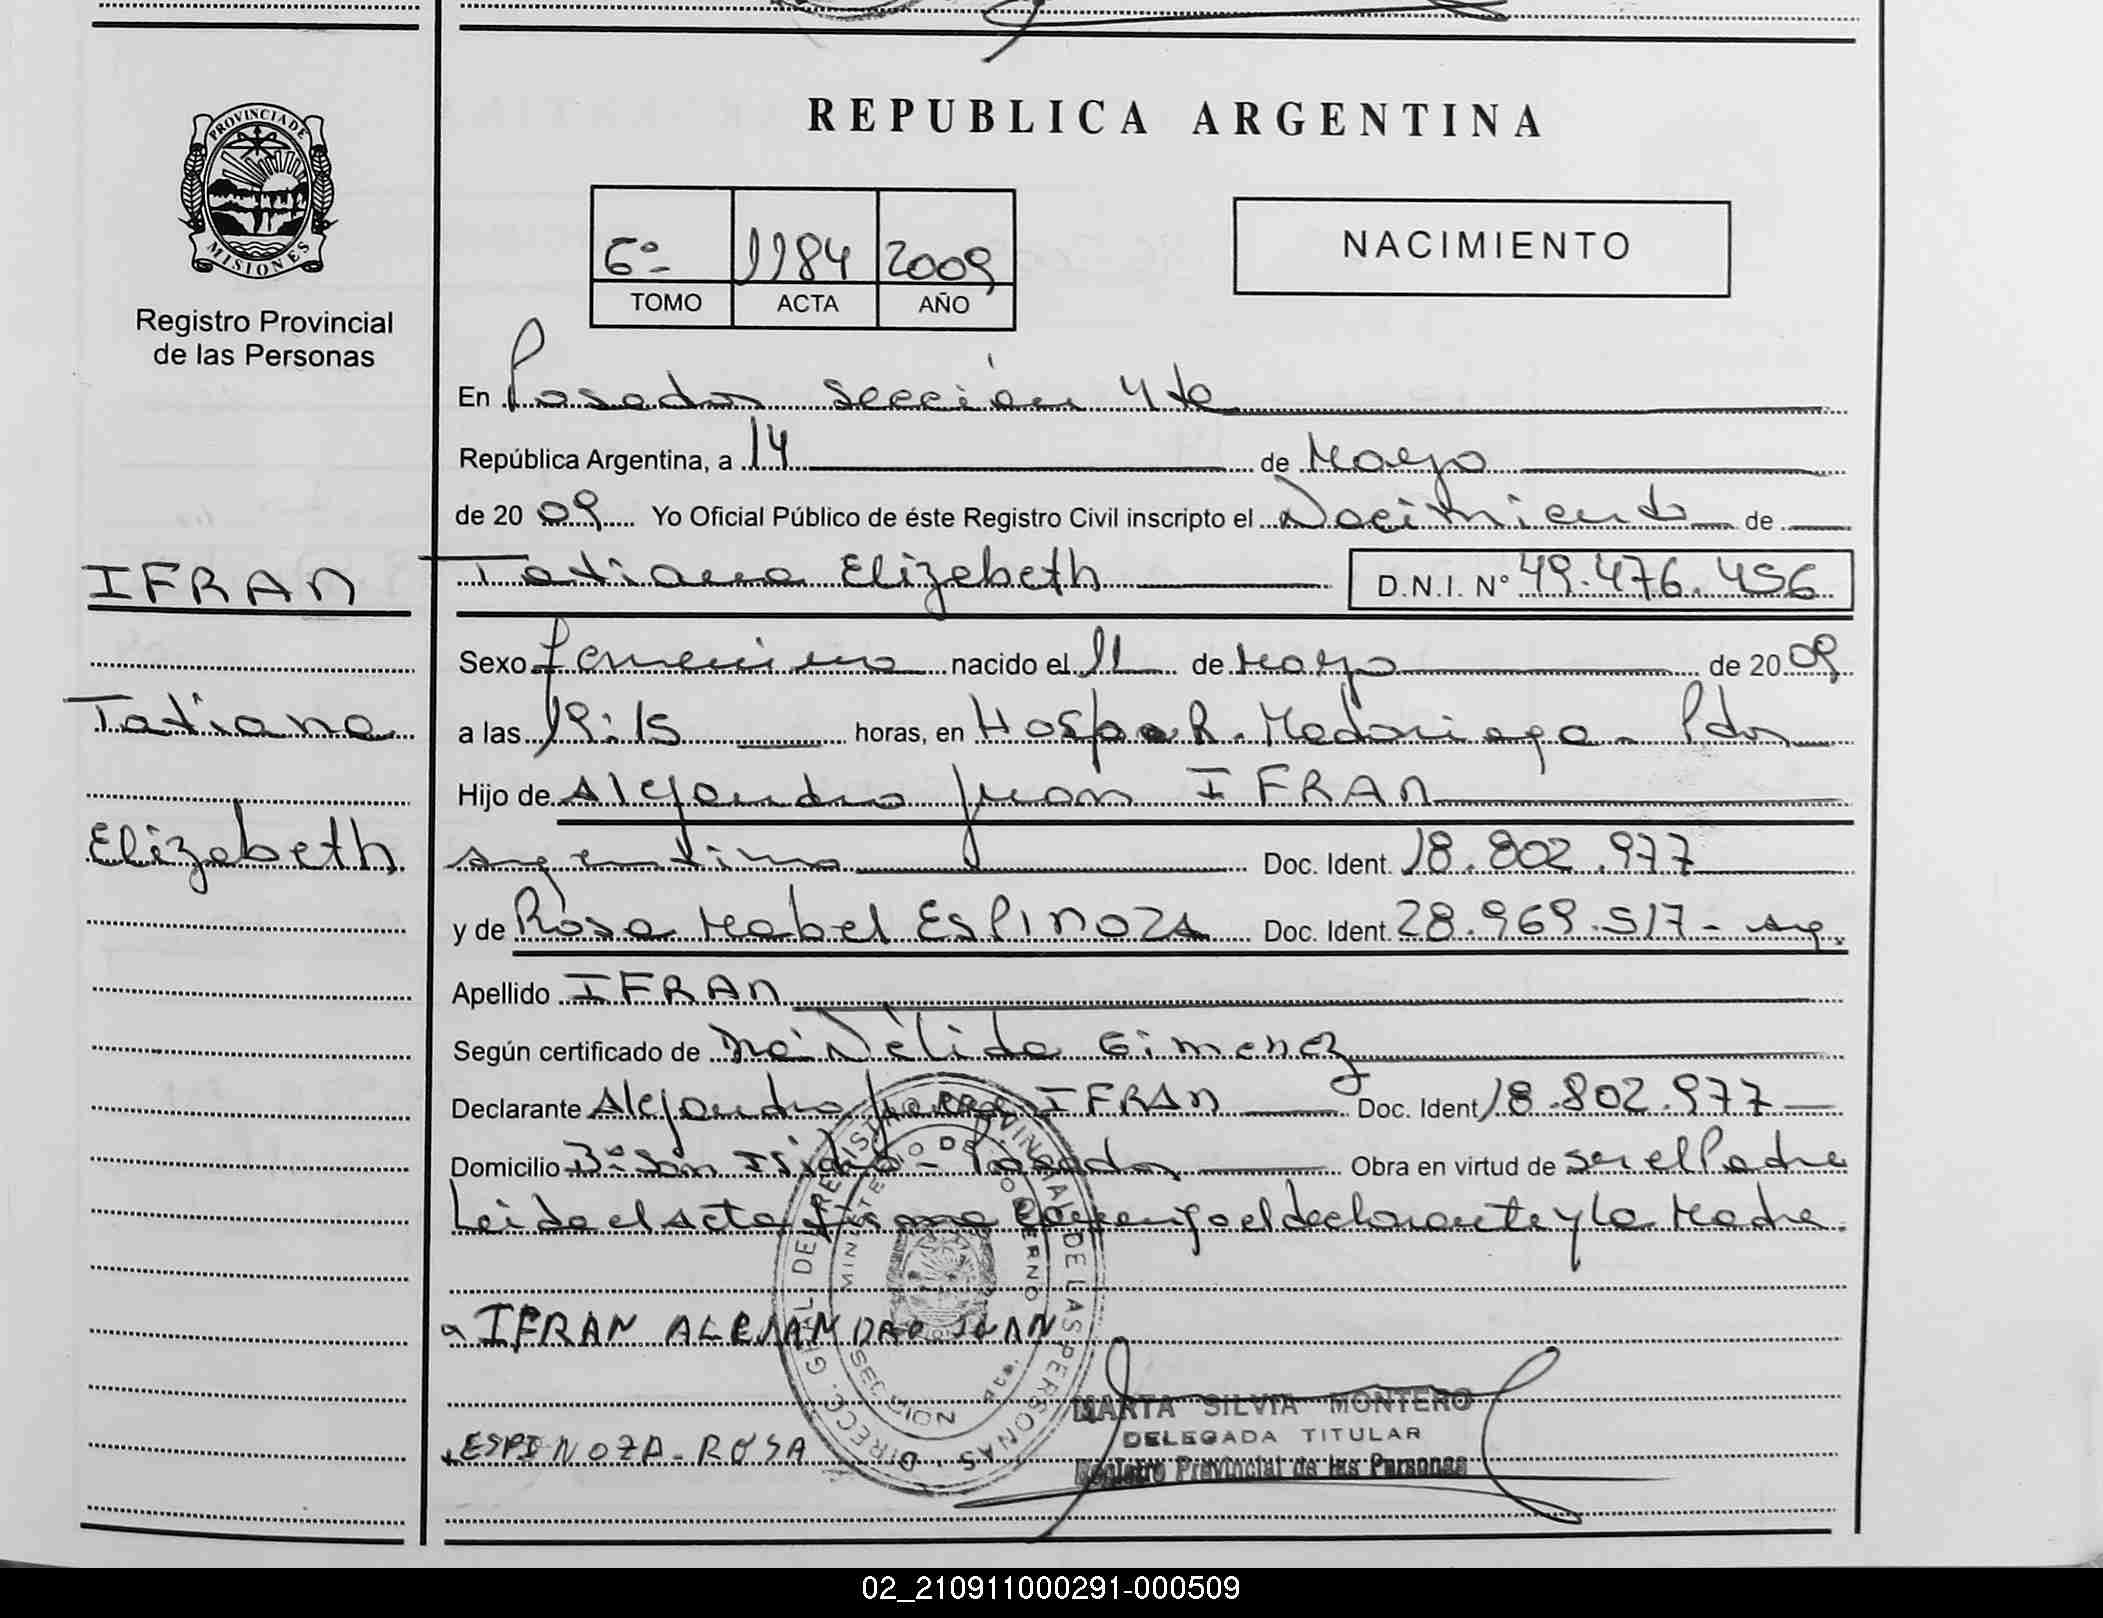 PROVINCIA DE
MISIONES
Registro Provincial
de las Personas
IFRAN
Tatiana
Elizabeth
REPUBLICA ARGENTINA
6º 1184 2009
TOMO ACTA AÑO
NACIMIENTO
En Posadas sección 4ta
República Argentina, a 14 de Mayo
de 20 09 Yo Oficial Público de éste Registro Civil inscripto el Nacimiento de
Tatiana Elizabeth D.N.I. Nº 49.476.456
Sexo femenino nacido el 11 de Mayo de 20 09
a las 19:15 horas, en Hosp. R. Madariaga - Pdas
Hijo de Alejandro Juan IFRAN
argentino Doc. Ident. 18.802.977
y de Rosa Mabel ESPINOZA Doc. Ident. 28.969.517 - arg.
Apellido IFRAN
Según certificado de Mª Nélida Gimenez
Declarante Alejandro Juan IFRAN Doc. Ident 18.802.977
Domicilio Bº San Isidro - Posadas Obra en virtud de ser el Padre
Leida el Acta firma conmigo el declarante y la Madre.
IFRAN ALEJANDRO JUAN
ESPINOZA - ROSA
DIRECC. GRAL DEL REGISTRO PROVINCIAL DE LAS PERSONAS
MINISTERIO DE GOBIERNO
MISIONES
MARTA SILVIA MONTERO
DELEGADA TITULAR
Registro Provincial de las Personas
02_210911000291-000509